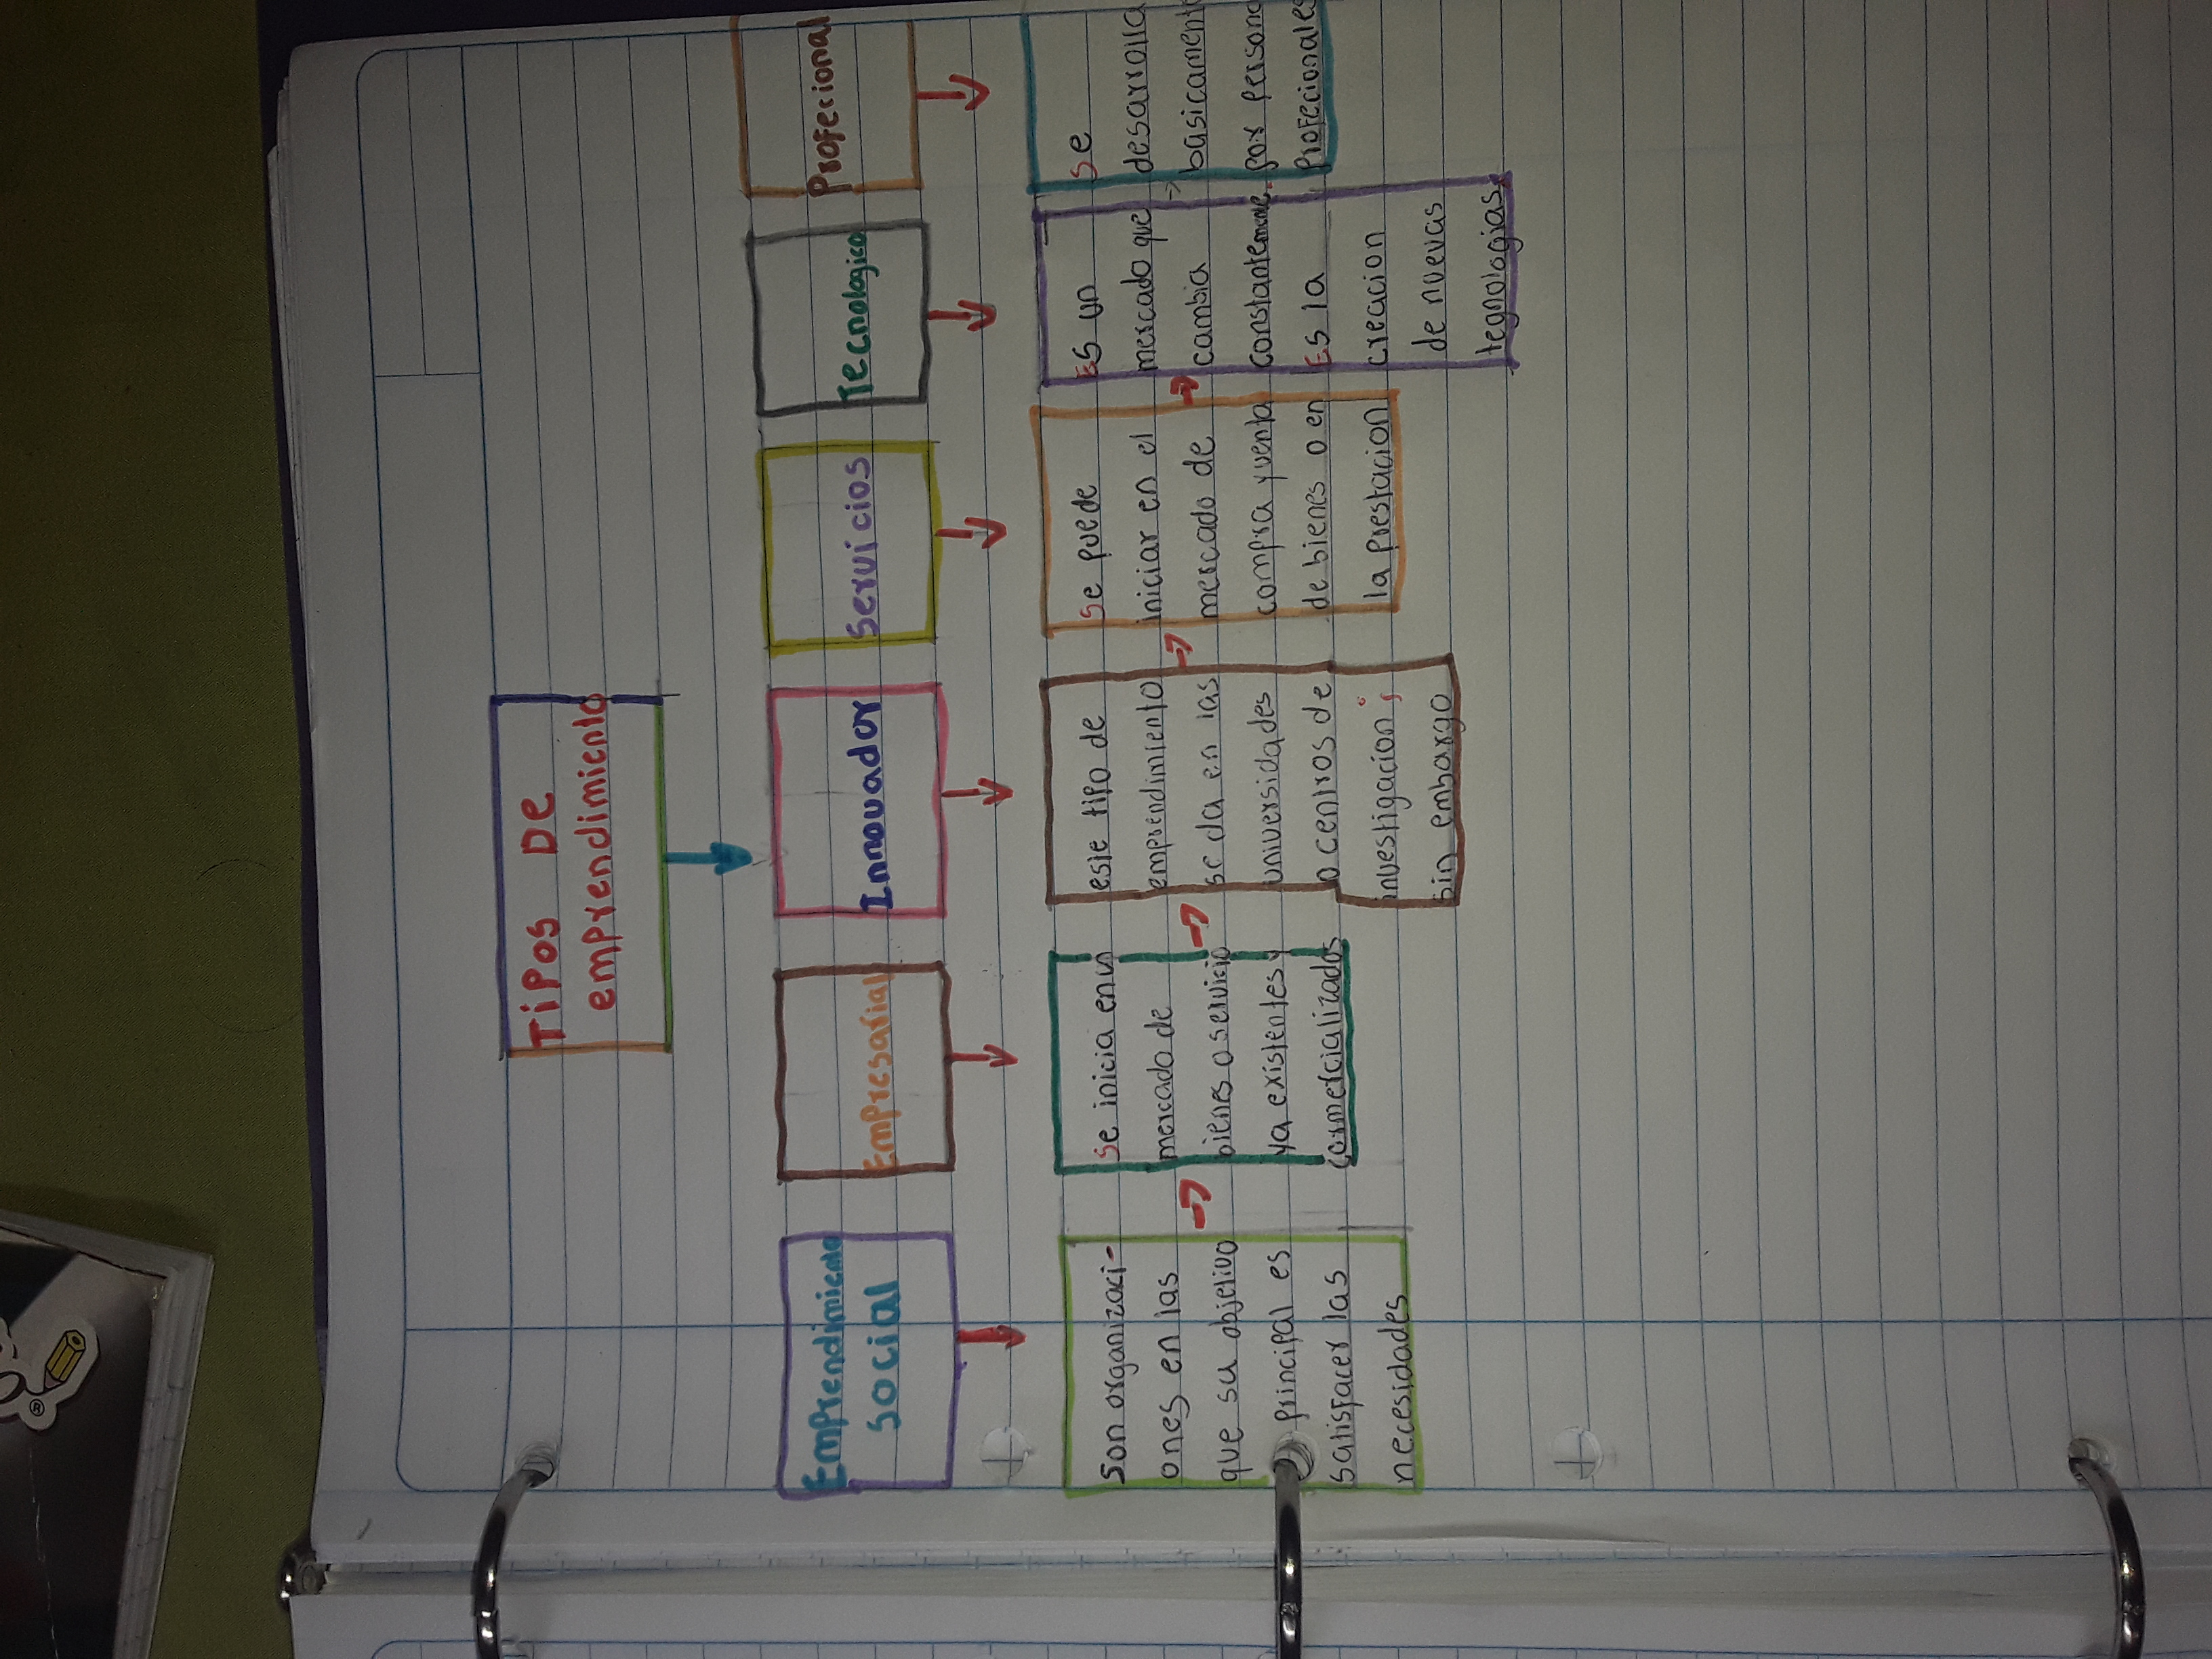 TIPOS DE
emprendimiento
Emprendimiento
social
Empresarial
Innovador
Servicios
Tecnologico
Profecional
Son organizaci-
ones en las
que su objetivo
principal es
satisfacer las
necesidades
Se inicia en un
mercado de
bienes o servicio
ya existentes y
comercializados
este tipo de
emprendimiento
se da en las
universidades
o centros de
investigacion;
sin embargo
Se puede
iniciar en el
mercado de
compra y venta
de bienes o en
la prestacion
Es un
mercado que
cambia
constantemente
Es la
creacion
de nuevas
tegnologias
Se
desarrolla
basicamente
por persona
Profecionales